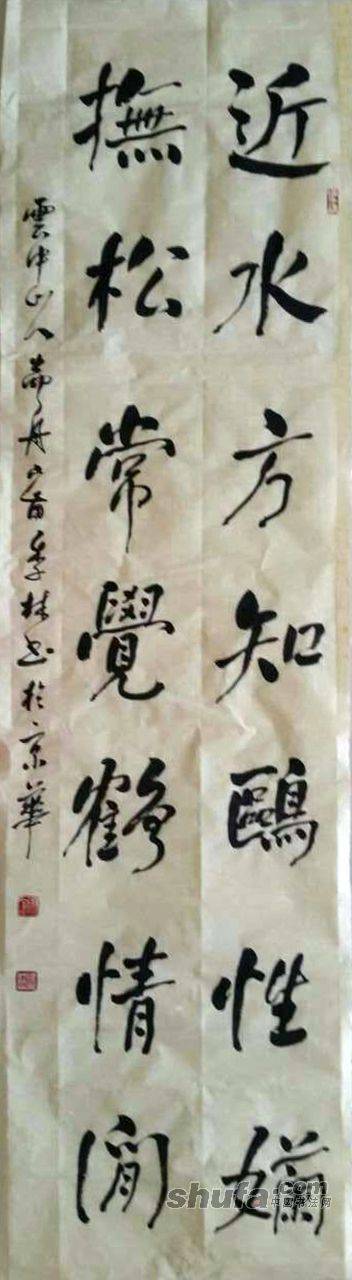 近水方知鷗性嬾
撫松常覺鶴情閒
雲中山人季林书於京華
shufa.com
中国书法网